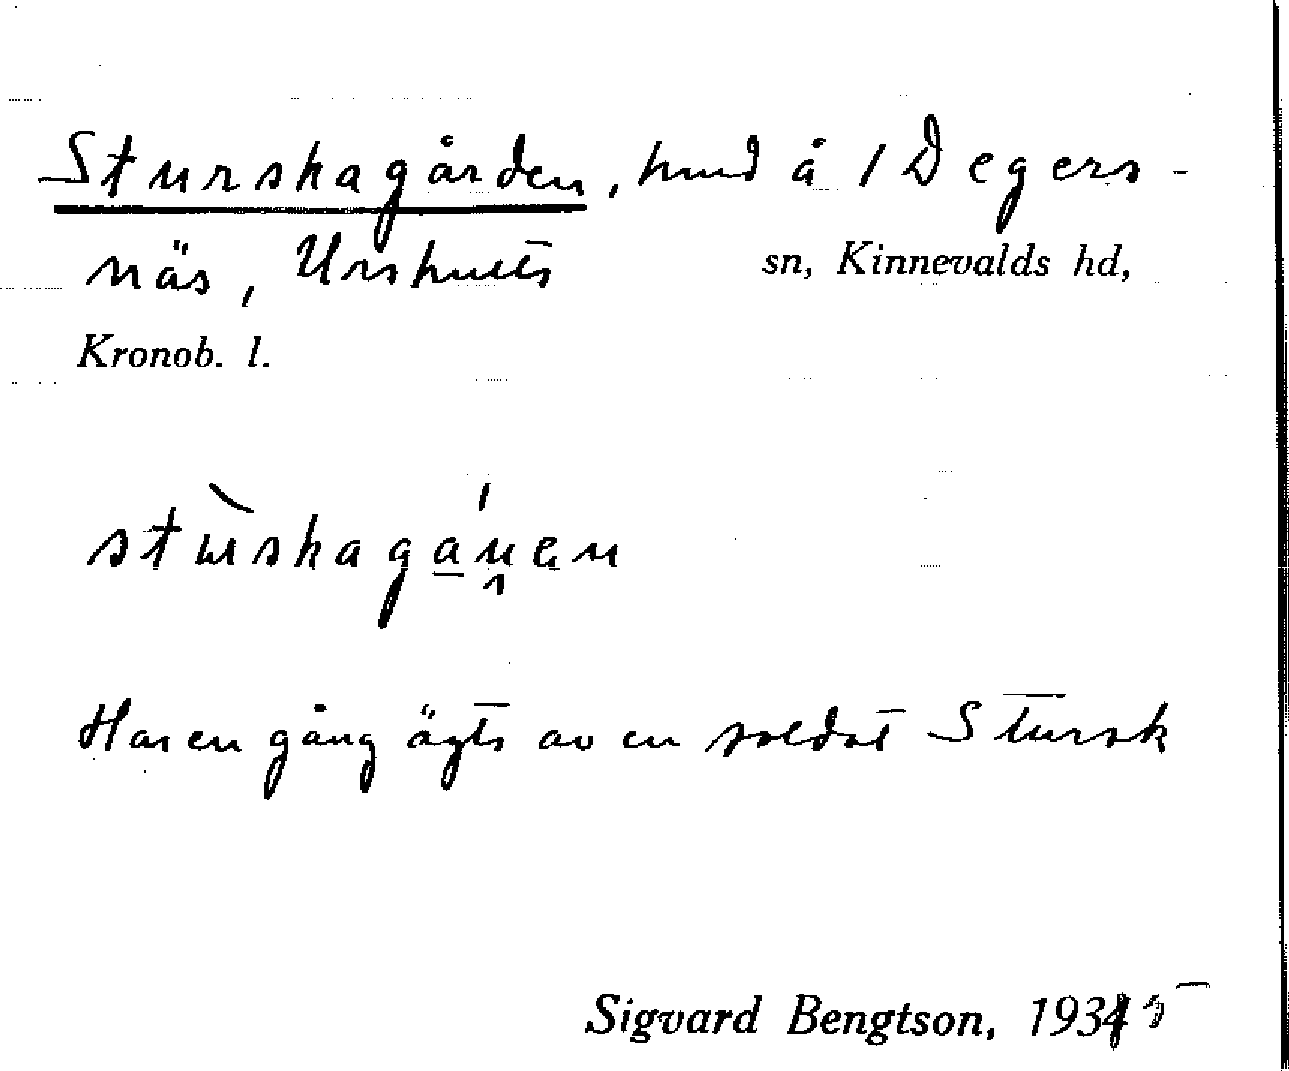 Sturskagården, hmd å 1 Degers-
näs, Urshults sn, Kinnevalds hd,
Kronob. l.
stùskagánen
Har en gång ägts av en soldat Stursk
Sigvard Bengtson, 1935